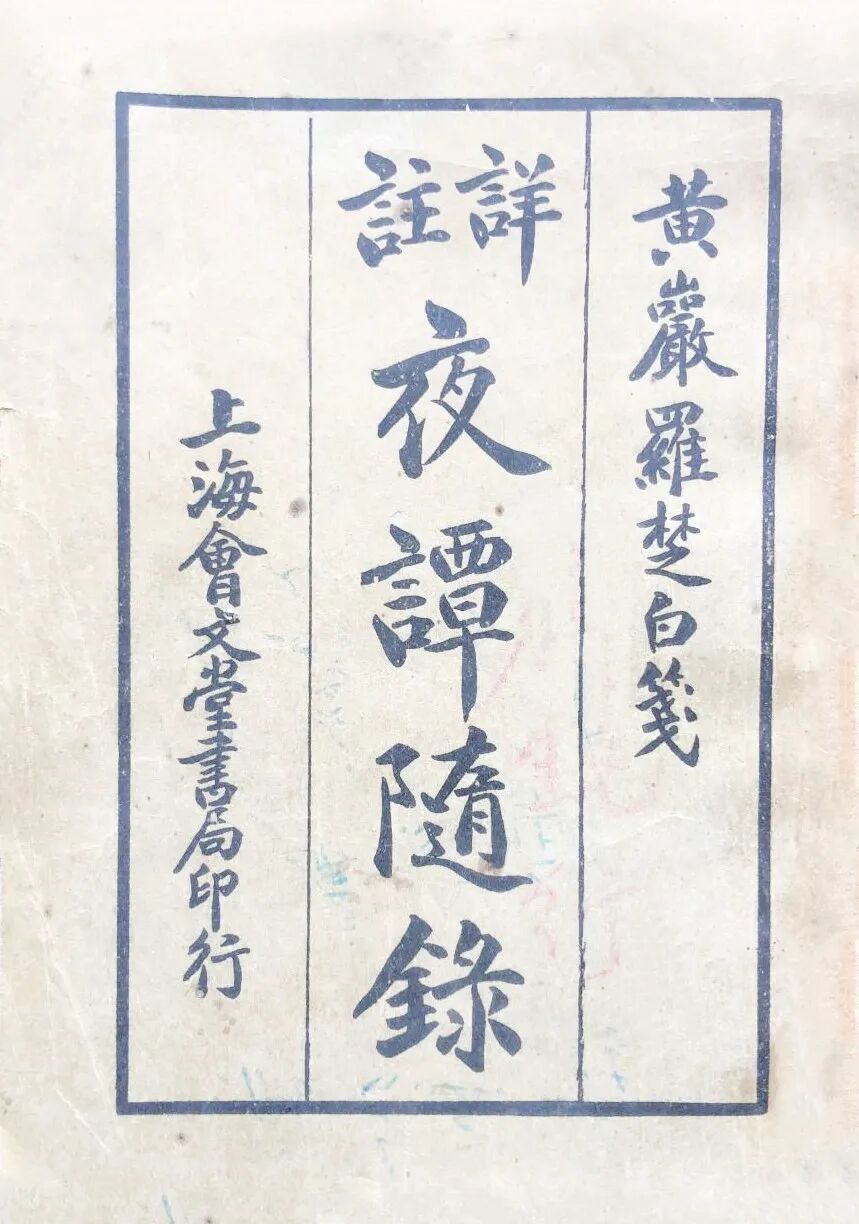 黄巖羅楚白箋
詳註
夜譚隨錄
上海會文堂書局印行